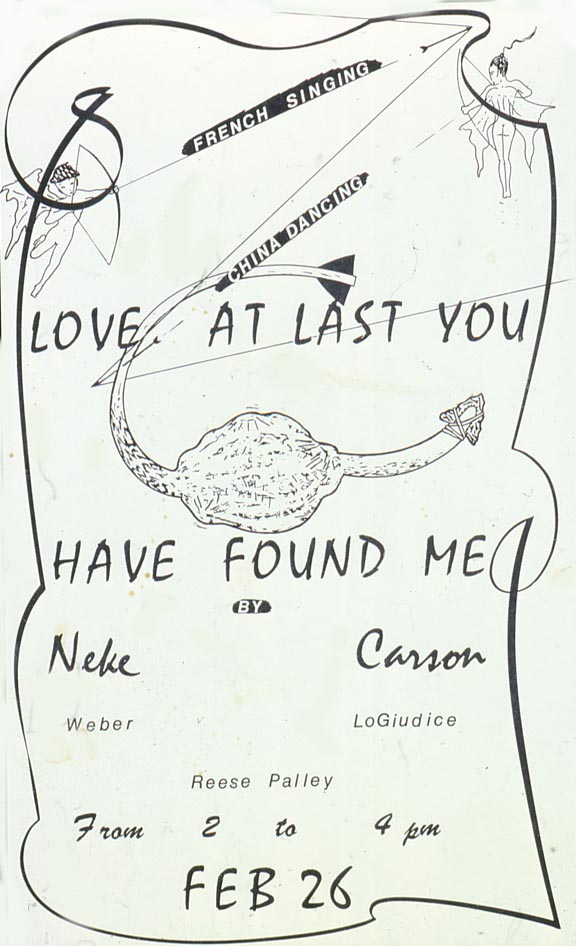 FRENCH SINGING
CHINA DANCING
LOVE AT LAST YOU
HAVE FOUND ME
BY
Neke Carson
Weber LoGiudice
Reese Palley
From 2 to 4 pm
FEB 26